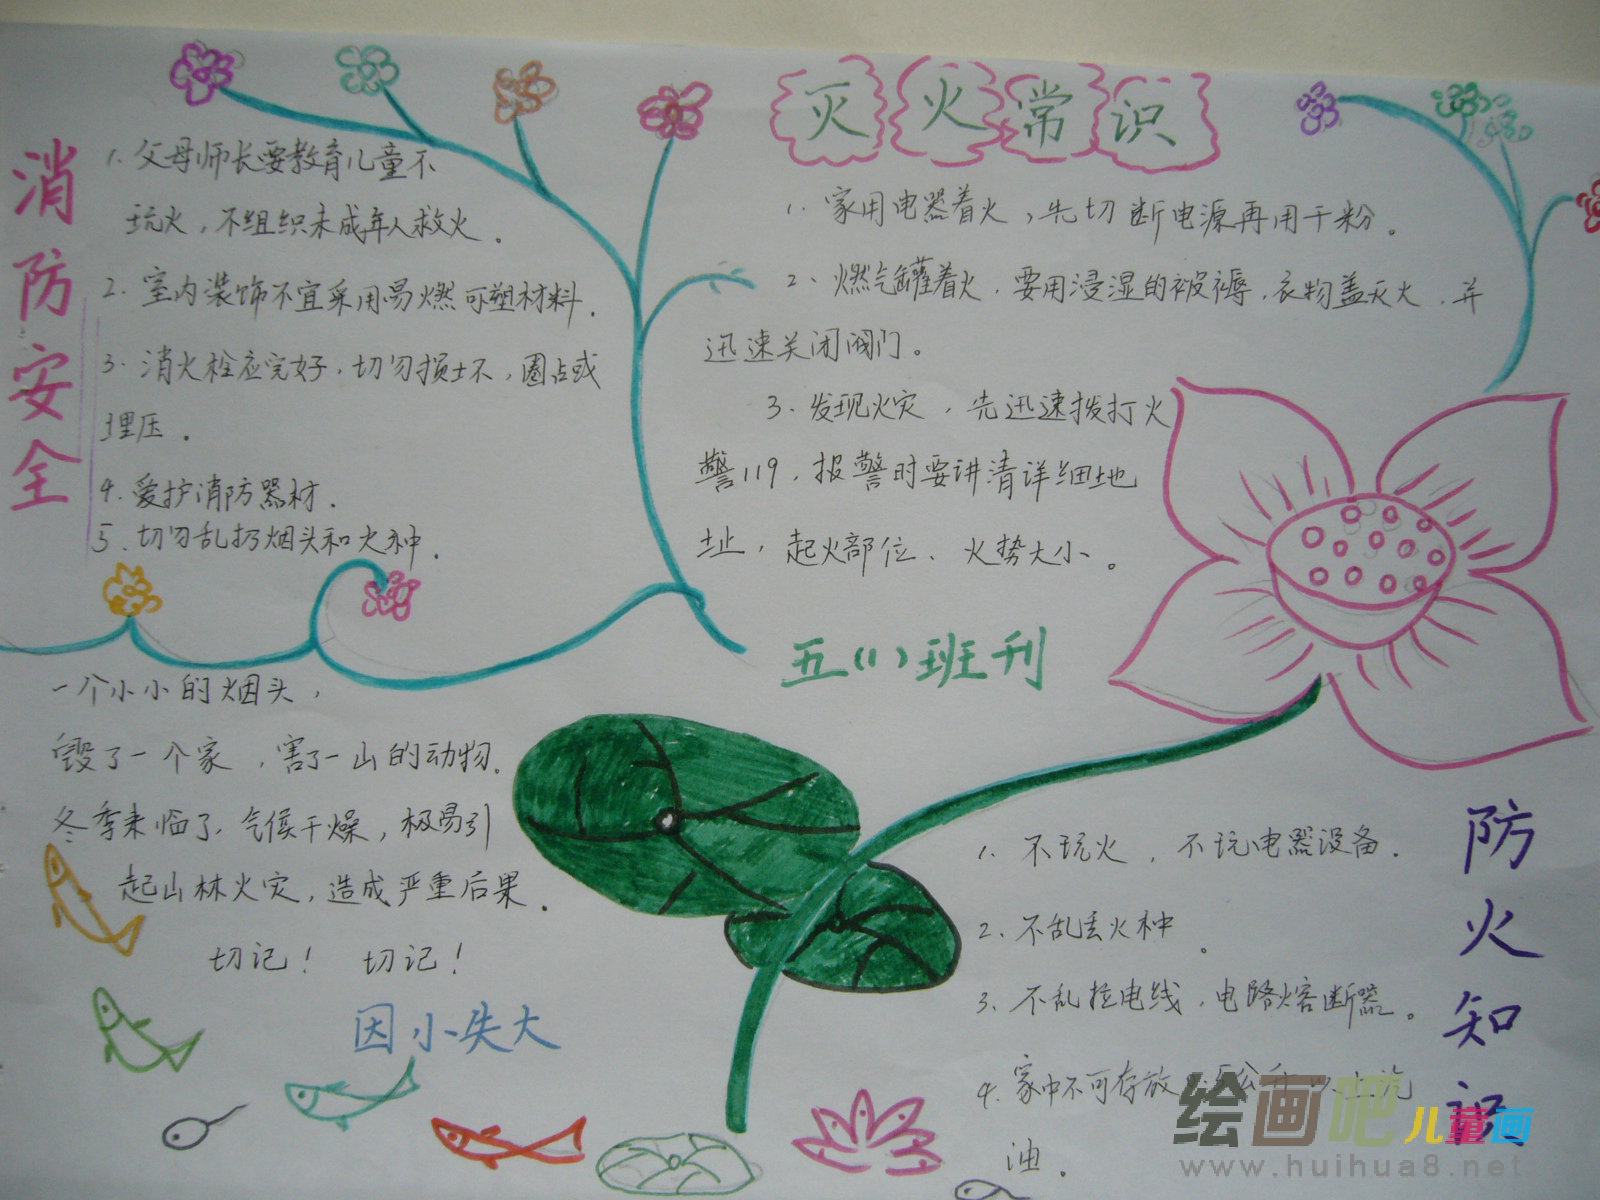 消防安全
1. 父母师长要教育儿童不
玩火，不组织未成年人救火。
2. 室内装饰不宜采用易燃可塑材料.
3. 消火栓应完好，切勿损坏，圈占或
埋压。
4. 爱护消防器材.
5. 切勿乱扔烟头和火种.
灭火常识
1. 家用电器着火，先切断电源再用干粉。
2、燃气罐着火，要用浸湿的被褥，衣物盖灭火，并
迅速关闭阀门。
3、发现火灾，先迅速拨打火
警119，报警时要讲清详细地
址，起火部位、火势大小。
五(1)班刊
一个小小的烟头，
毁了一个家，害了一山的动物.
冬季来临了，气候干燥，极易引
起山林火灾，造成严重后果.
切记！ 切记！
因小失大
防火知识
1. 不玩火，不玩电器设备.
2. 不乱丢火种。
3. 不乱拉电线，电路熔断器。
4. 家中不可存放 公升以上汽
油.
绘画吧儿童画
www.huihua8.net